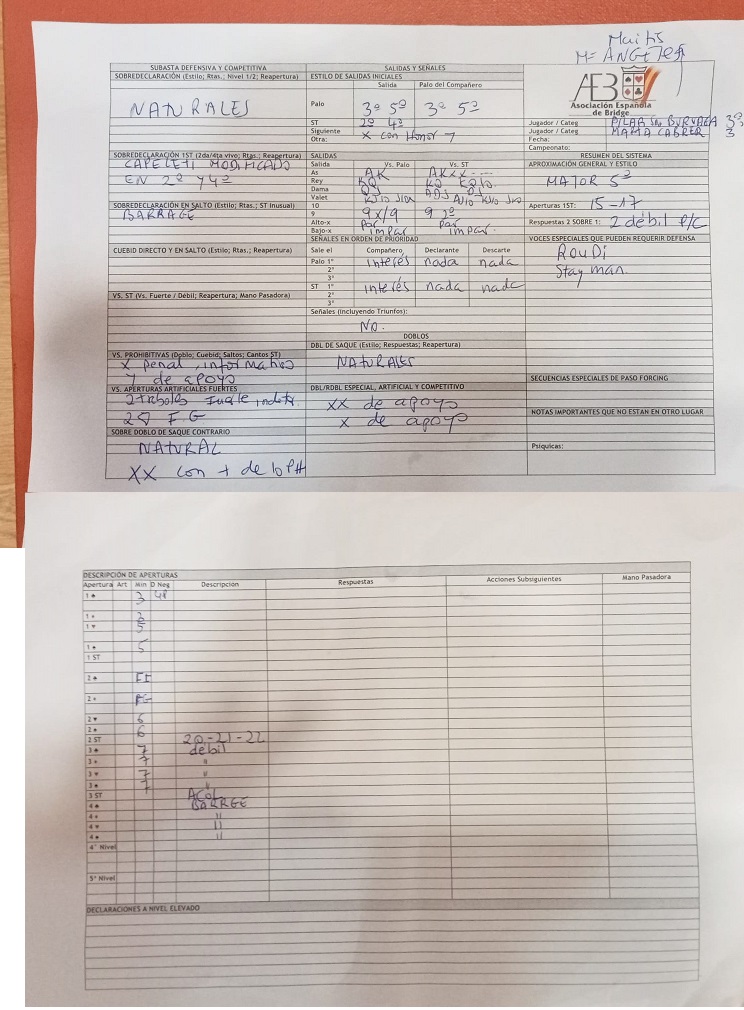 Maitis
Mª ANGELES
SUBASTA DEFENSIVA Y COMPETITIVA
SOBREDECLARACIÓN (Estilo; Rtas.; Nivel 1/2; Reapertura)
NATURALES
SOBREDECLARACIÓN 1ST (2da/4ta vivo; Rtas.; Reapertura)
CAPELETI MODIFICADO
EN 2ª Y 4ª
SOBREDECLARACIÓN EN SALTO (Estilo; Rtas.; ST Inusual)
BARRAGE
CUEBID DIRECTO Y EN SALTO (Estilo; Rtas.; Reapertura)
VS. ST (Vs. Fuerte / Débil; Reapertura; Mano Pasadora)
VS. PROHIBITIVAS (Doblo; Cuebid; Saltos; Cantos ST)
X penal, informativo
y de apoyo
VS. APERTURAS ARTIFICIALES FUERTES
2 treboles Fuerte
2♦ F.G
SOBRE DOBLO DE SAQUE CONTRARIO
NATURAL
XX con + de 10 PH
SALIDAS Y SEÑALES
ESTILO DE SALIDAS INICIALES
Salida Palo del Compañero
Palo 3ª 5ª 3ª 5ª
ST 2ª 4ª
Siguiente X con Honor
Otra:
SALIDAS
Salida Vs. Palo Vs. ST
As AK AKXX
Rey KQ
Dama QJ
Valet
10
9 9x/9 9 2ª
Alto-x Par Par
Bajo-x impar impar.
SEÑALES EN ORDEN DE PRIORIDAD
Sale el Compañero Declarante Descarte
Palo 1º interés nada nada
2º
3º
ST 1º interés nada nada
2º
3º
Señales (Incluyendo Triunfos):
No.
DOBLOS
DBL DE SAQUE (Estilo; Respuestas; Reapertura)
NATURALES
DBL/RDBL ESPECIAL, ARTIFICIAL Y COMPETITIVO
XX de apoyo
X de apoyo
AEB
Asociación Española
de Bridge
Jugador / Categ PILAR 3ª
Jugador / Categ MARTA CABRER 3
Fecha:
Campeonato:
RESUMEN DEL SISTEMA
APROXIMACIÓN GENERAL Y ESTILO
MAJOR 5ª
Aperturas 1ST: 15-17
Respuestas 2 SOBRE 1: 2 débil P/C
VOCES ESPECIALES QUE PUEDEN REQUERIR DEFENSA
ROUDI
Stayman.
SECUENCIAS ESPECIALES DE PASO FORCING
NOTAS IMPORTANTES QUE NO ESTAN EN OTRO LUGAR
Psíquicas:
DESCRIPCIÓN DE APERTURAS
Apertura Art Min D Neg Descripción Respuestas Acciones Subsiguientes Mano Pasadora
1♣ 3
1♦ 3
1♥ 5
1♠ 5
1 ST
2♣
2♦ FG
2♥ 6
2♠ 6
2 ST 20-21-22
3♣ 7 débil
3♦ 7 "
3♥ 7 "
3♠ 7 "
3 ST ACOL
4♣ BARRGE
4♦ "
4♥ "
4♠ "
4º Nivel
5º Nivel
DECLARACIONES A NIVEL ELEVADO